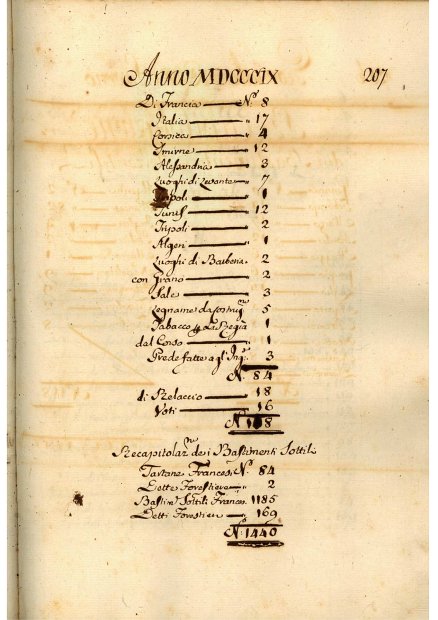 Anno MDCCCIX 207
Di Francia N.º 8
Italia " 17
Corsica " 4
Smirne " 12
Alessandria " 3
Luoghi di Levante " 7
" 1
Tunis " 12
Tripoli " 2
Algeri " 1
Luoghi di Barberia " 2
con Grano " 2
Sale " 3
Legname da 5
Tabacco La Regia 1
dal Corso 1
Prede fatte agl' Ing.i 3
N.º 84
di Relaccio 18
Voti 16
N.º 118
Recapitolaz.ne dei Bastimenti Sottili
Tartane Francesi N.º 84
Dette Forestiere " 2
Bastim.ti Sottili Frances. 1185
Detti Forestieri " 169
N.º 1440